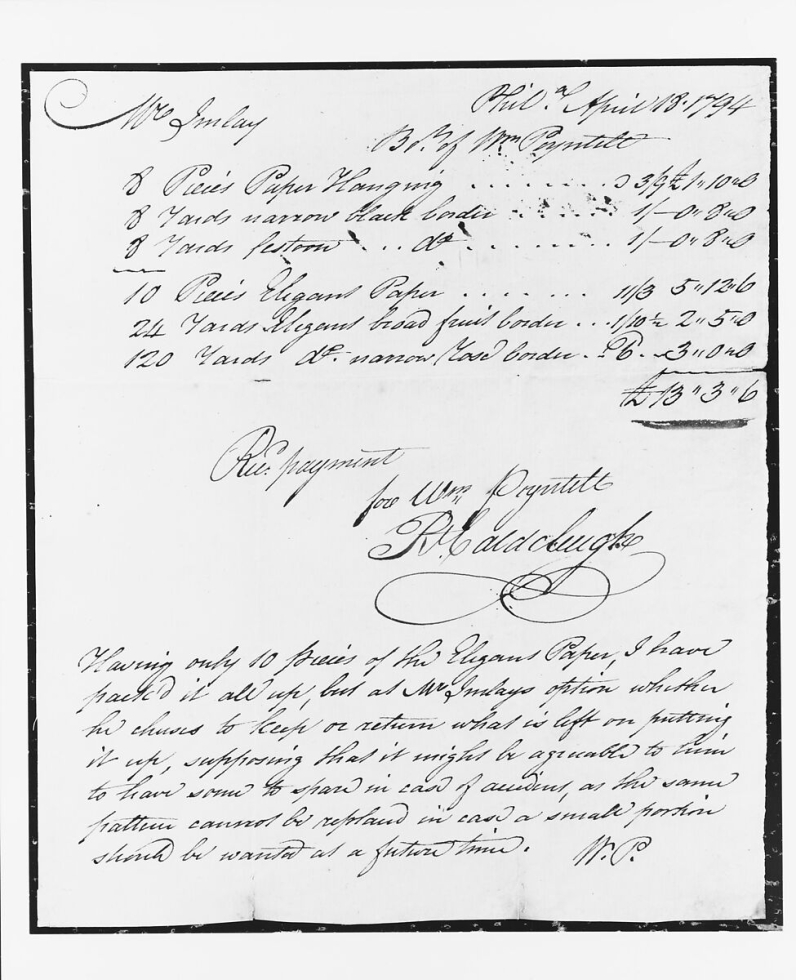 Phil.ᵃ April 18. 1794
Mr. Imlay
Bo.ᵗ of Wm Poyntell
8 Pieces Paper Hanging . . . . . . . . 3/9 £ 1"10"0
8 Yards narrow black border . . . . . 1/— 0"8"0
8 Yards festoon . . . do . . . . . . . . 1/— 0"8"0
10 Pieces Elegant Paper . . . . . . . 11/3 5"12"6
24 Yards Elegant broad fruit border . . . 1/10½ 2"5"0
120 Yards do. narrow Rose border . 6. 3"0"0
£ 13"3"6
Rec.ᵈ payment
for Wm Poyntell
R. Caldcleugh
Having only 10 pieces of the Elegant Paper, I have
pack'd it all up, but at Mr Imlays option whether
he chuses to keep or return what is left on putting
it up, supposing that it might be agreeable to him
to have some to spare in case of accident, as the same
pattern cannot be replaced in case a small portion
should be wanted at a future time. W. P.